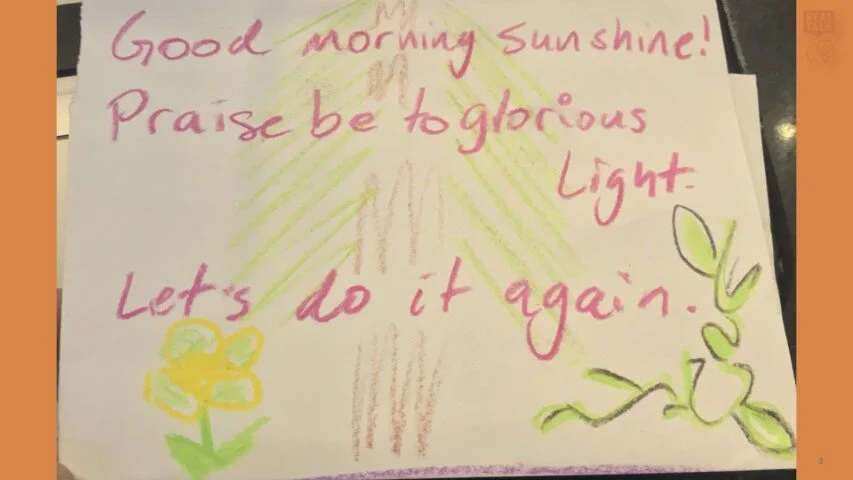 Good morning sunshine!
Praise be to glorious
Light.
Let's do it again.
3